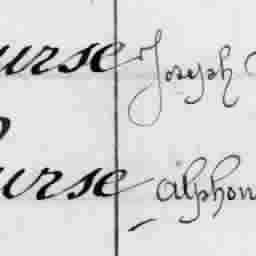 urse Joseph
urse alphon